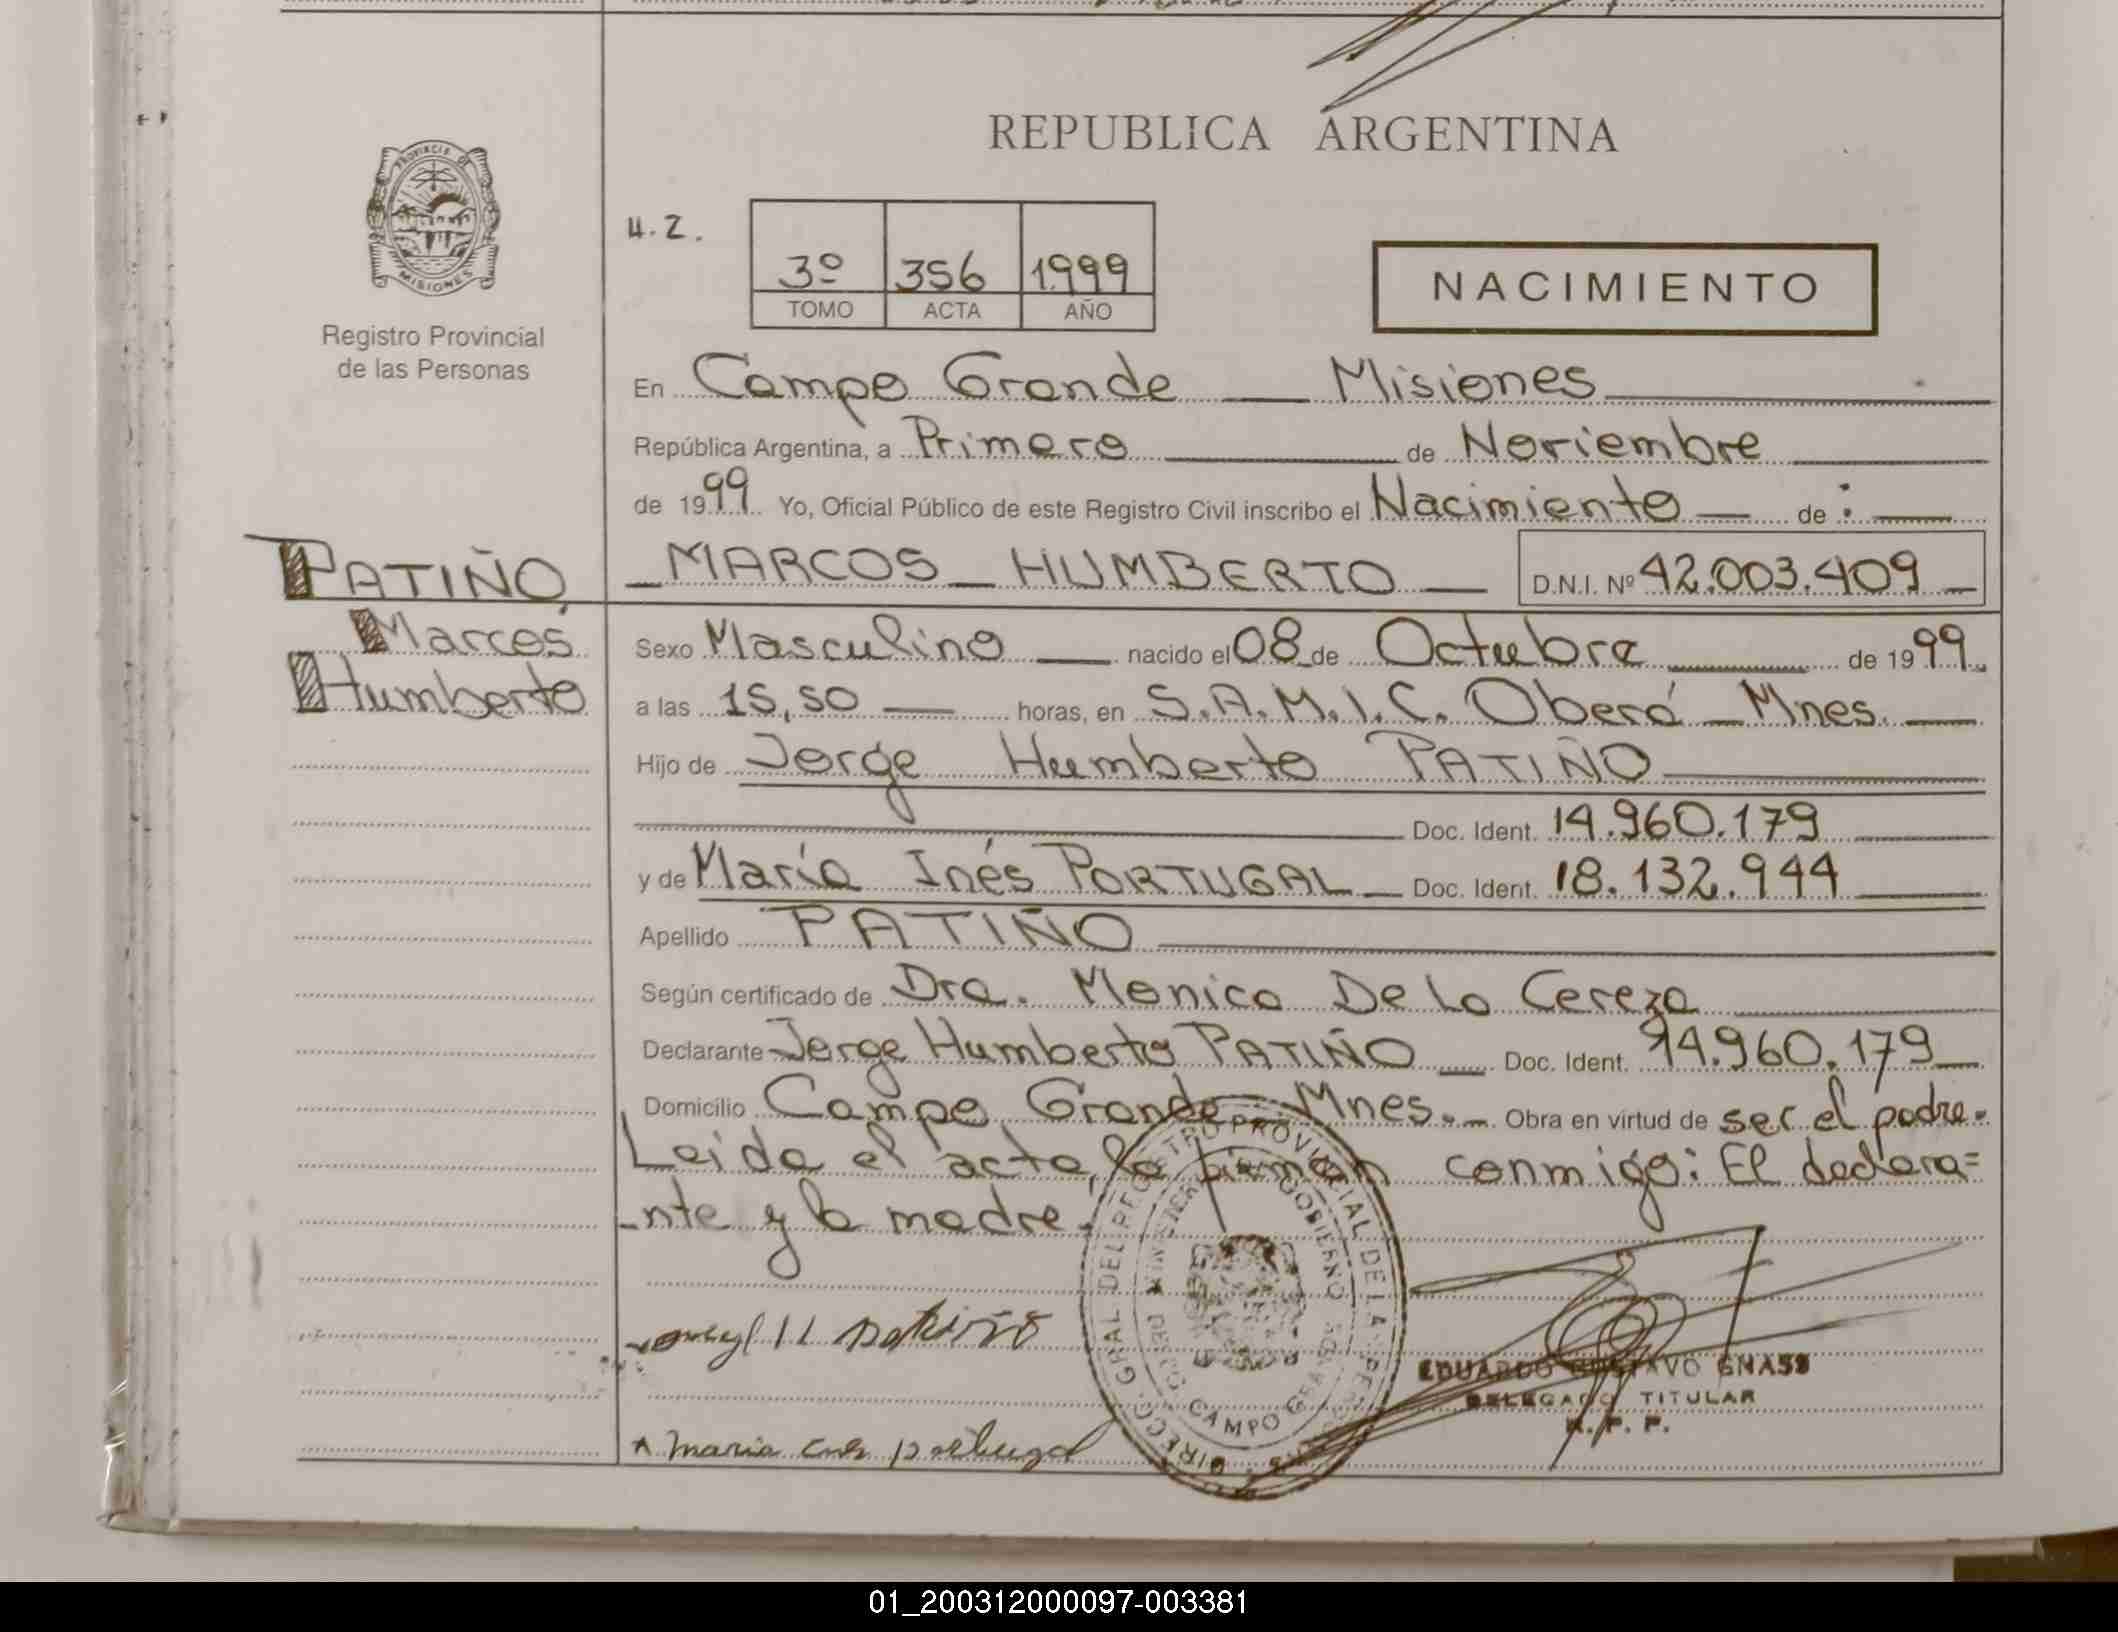 REPUBLICA ARGENTINA
PROVINCIA DE
MISIONES
Registro Provincial
de las Personas
U.Z.
3º 356 1999
TOMO ACTA AÑO
NACIMIENTO
En Campo Grande Misiones
República Argentina, a Primero de Noviembre
de 1999 Yo, Oficial Público de este Registro Civil inscribo el Nacimiento de :
PATIÑO
Marcos
Humberto
MARCOS HUMBERTO D.N.I. Nº 42.003.409
Sexo Masculino nacido el 08 de Octubre de 1999
a las 15,50 horas, en S.A.M.I.C. Oberá Mnes.
Hijo de Jorge Humberto PATIÑO
Doc. Ident. 14.960.179
y de María Inés PORTUGAL Doc. Ident. 18.132.944
Apellido PATIÑO
Según certificado de Dra. Monica De La Cereza
Declarante Jorge Humberto PATIÑO Doc. Ident. 14.960.179
Domicilio Campo Grande Mnes. Obra en virtud de ser el padre.
Leida el acta, la firman conmigo: El declara=
-nte y la madre.
DIRECC. GRAL DEL REGISTRO PROVINCIAL DE LAS PERSONAS
CAMPO GRANDE
H Patiño
Maria Ines Portugal
EDUARDO GUSTAVO GNASS
DELEGADO TITULAR
R. P. P.
01_200312000097-003381